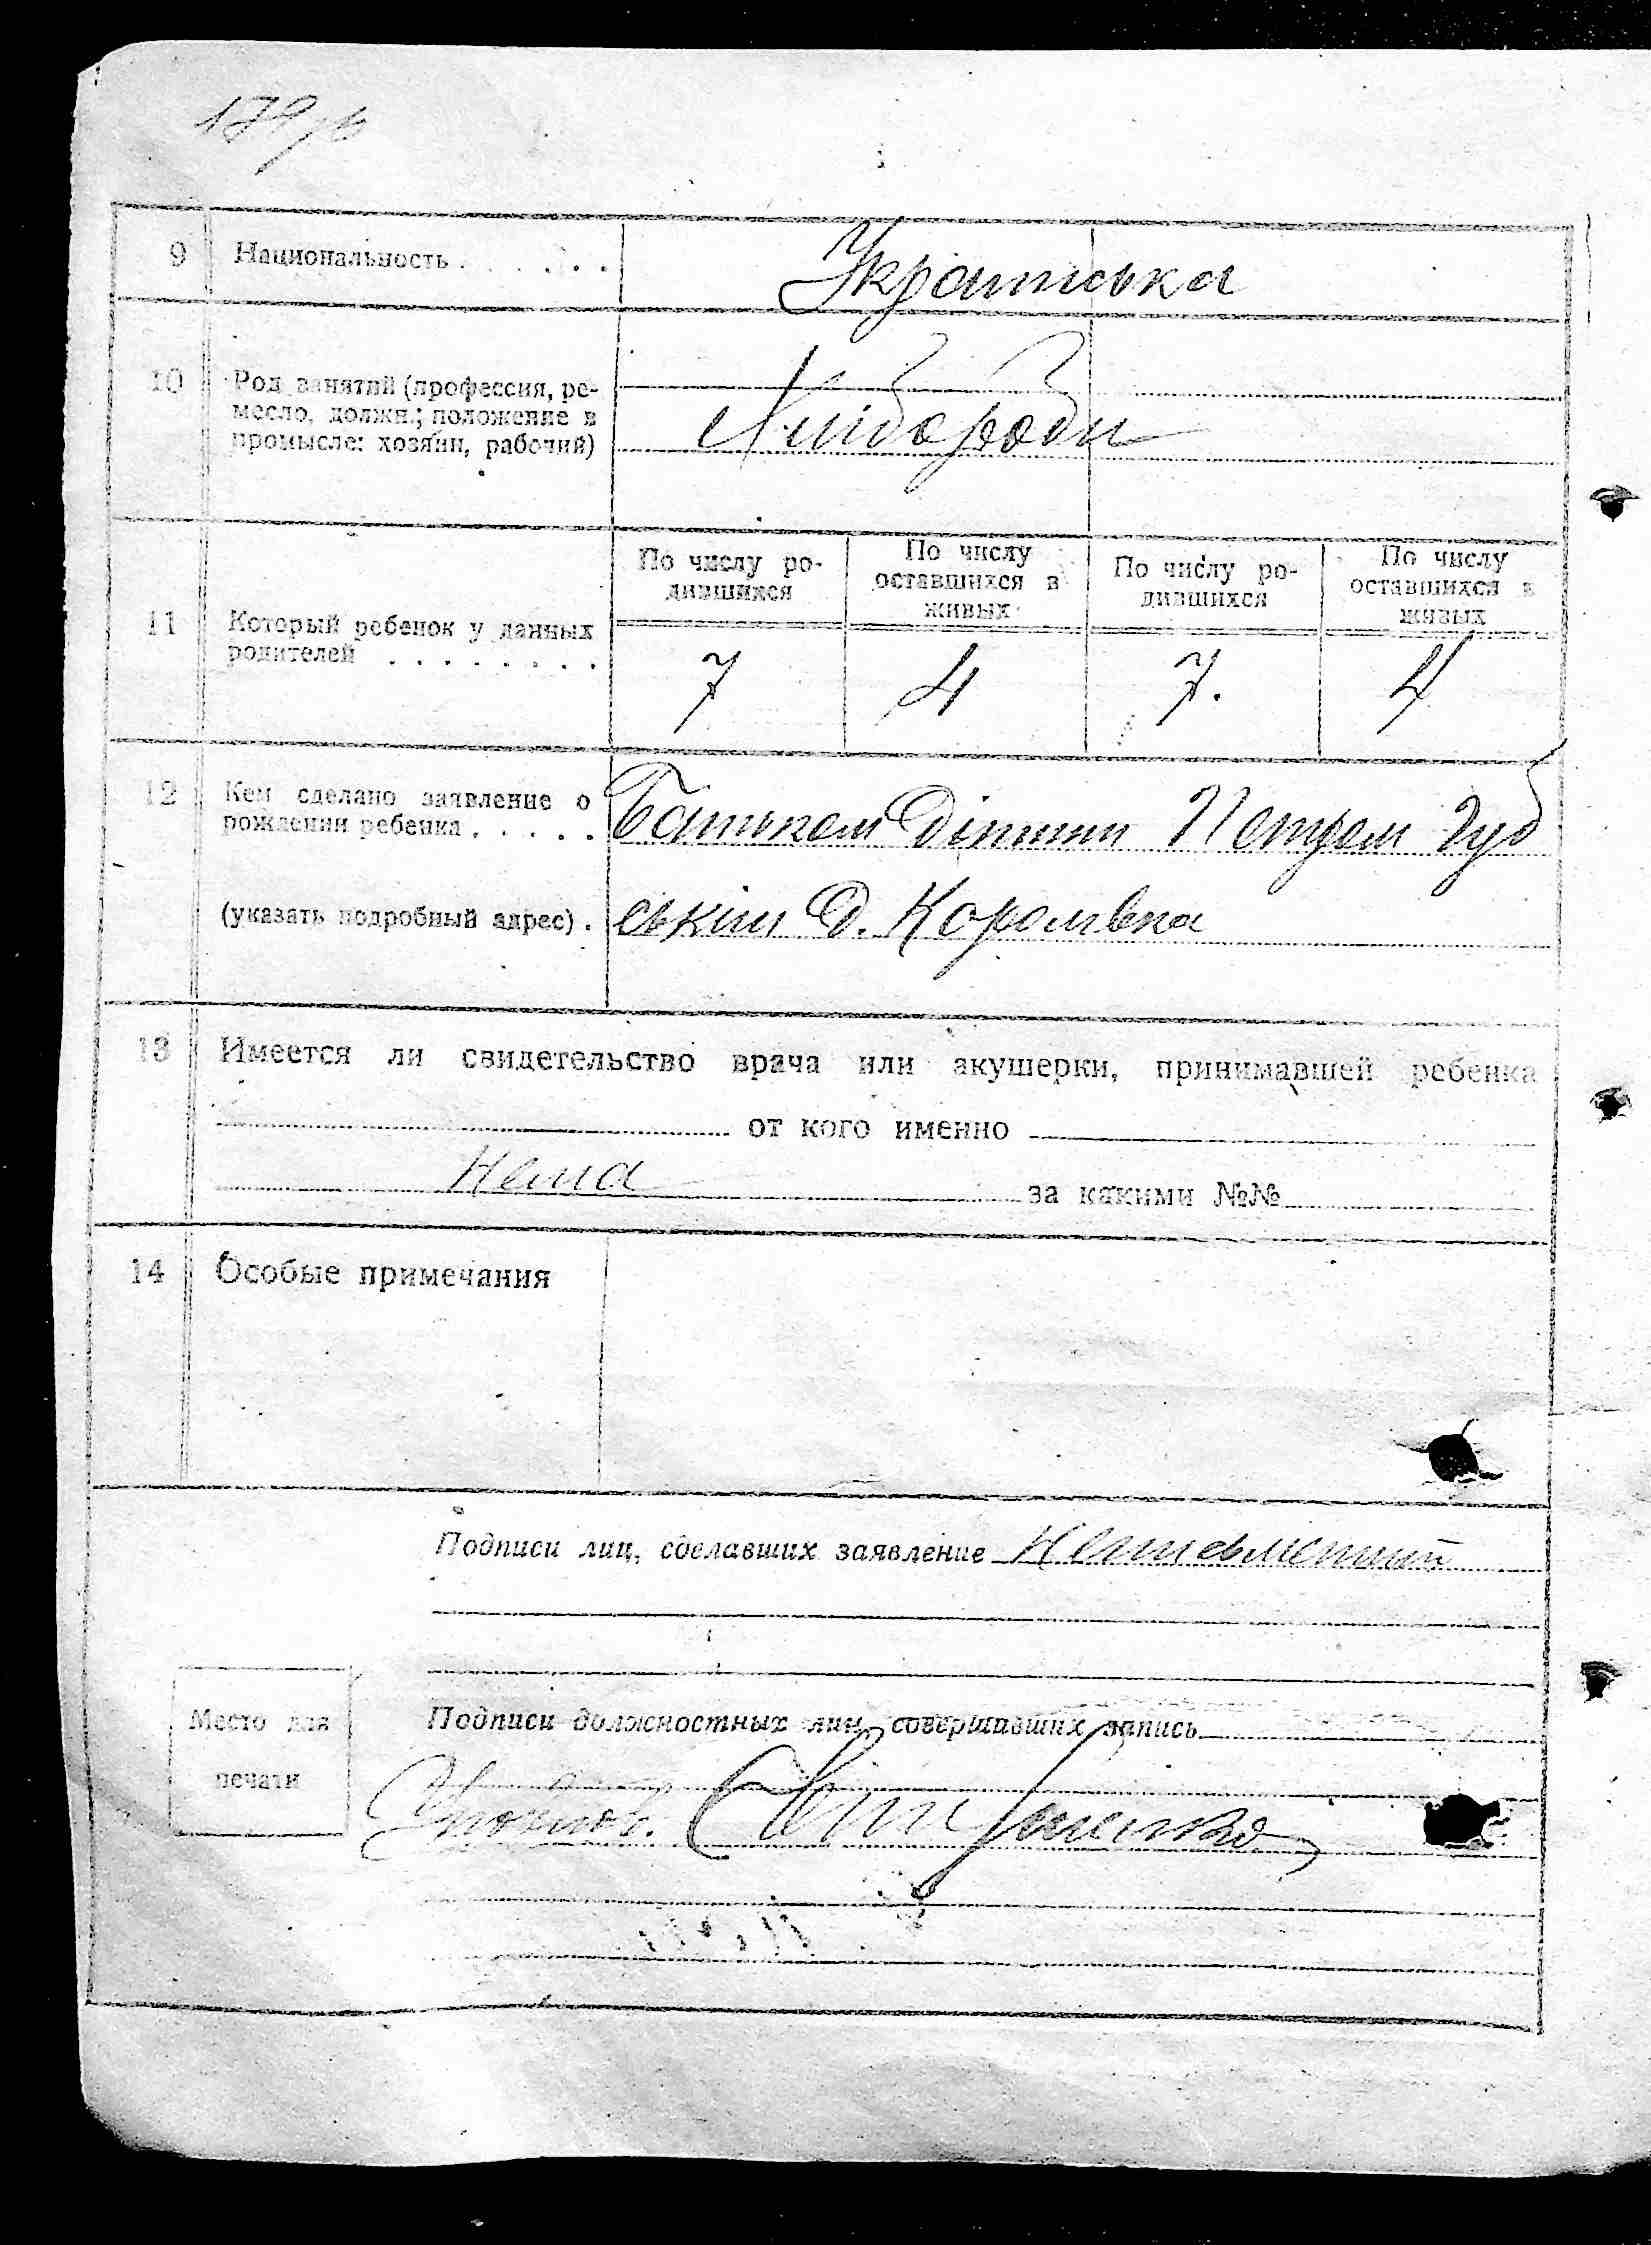 179
9 Национальность . . . . . . Українська
10 Род занятий (профессия, ре-
месло, должн.; положение в
промысле: хозяин, рабочий)
Хлібороби
По числу ро-
дившихся
По числу
оставшихся в
живых
По числу ро-
дившихся
По числу
оставшихся в
живых
11 Который ребенок у данных
родителей . . . . . . . .
7 4 7. 4
12 Кем сделано заявление о
рождении ребенка . . . . .
Батьком Дитини Петром
(указать подробный адрес) .
ським Д. Королівка
13 Имеется ли свидетельство врача или акушерки, принимавшей ребенка
от кого именно
Нема за какими №№
14 Особые примечания
Подписи лиц, сделавших заявление Неписьменний
Место для
печати
Подписи должностных лиц, совершавших запись